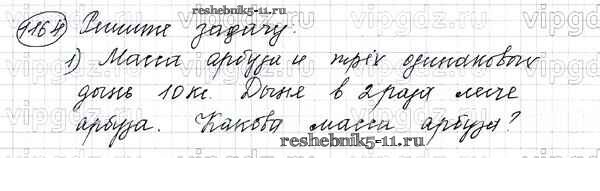 reshebnik5-11.ru
9164 Решите задачу:
1) Масса арбуза и трёх одинаковых
дынь 10 кг. Дыня в 2 раза легче
арбуза. Какова масса арбуза?
reshebnik5-11.ru